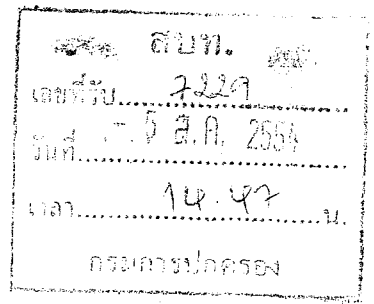 สบท.
เลขที่รับ 7229
วันที่ - 5 ส.ค. 2554
เวลา 14.47 น.
กรมการปกครอง